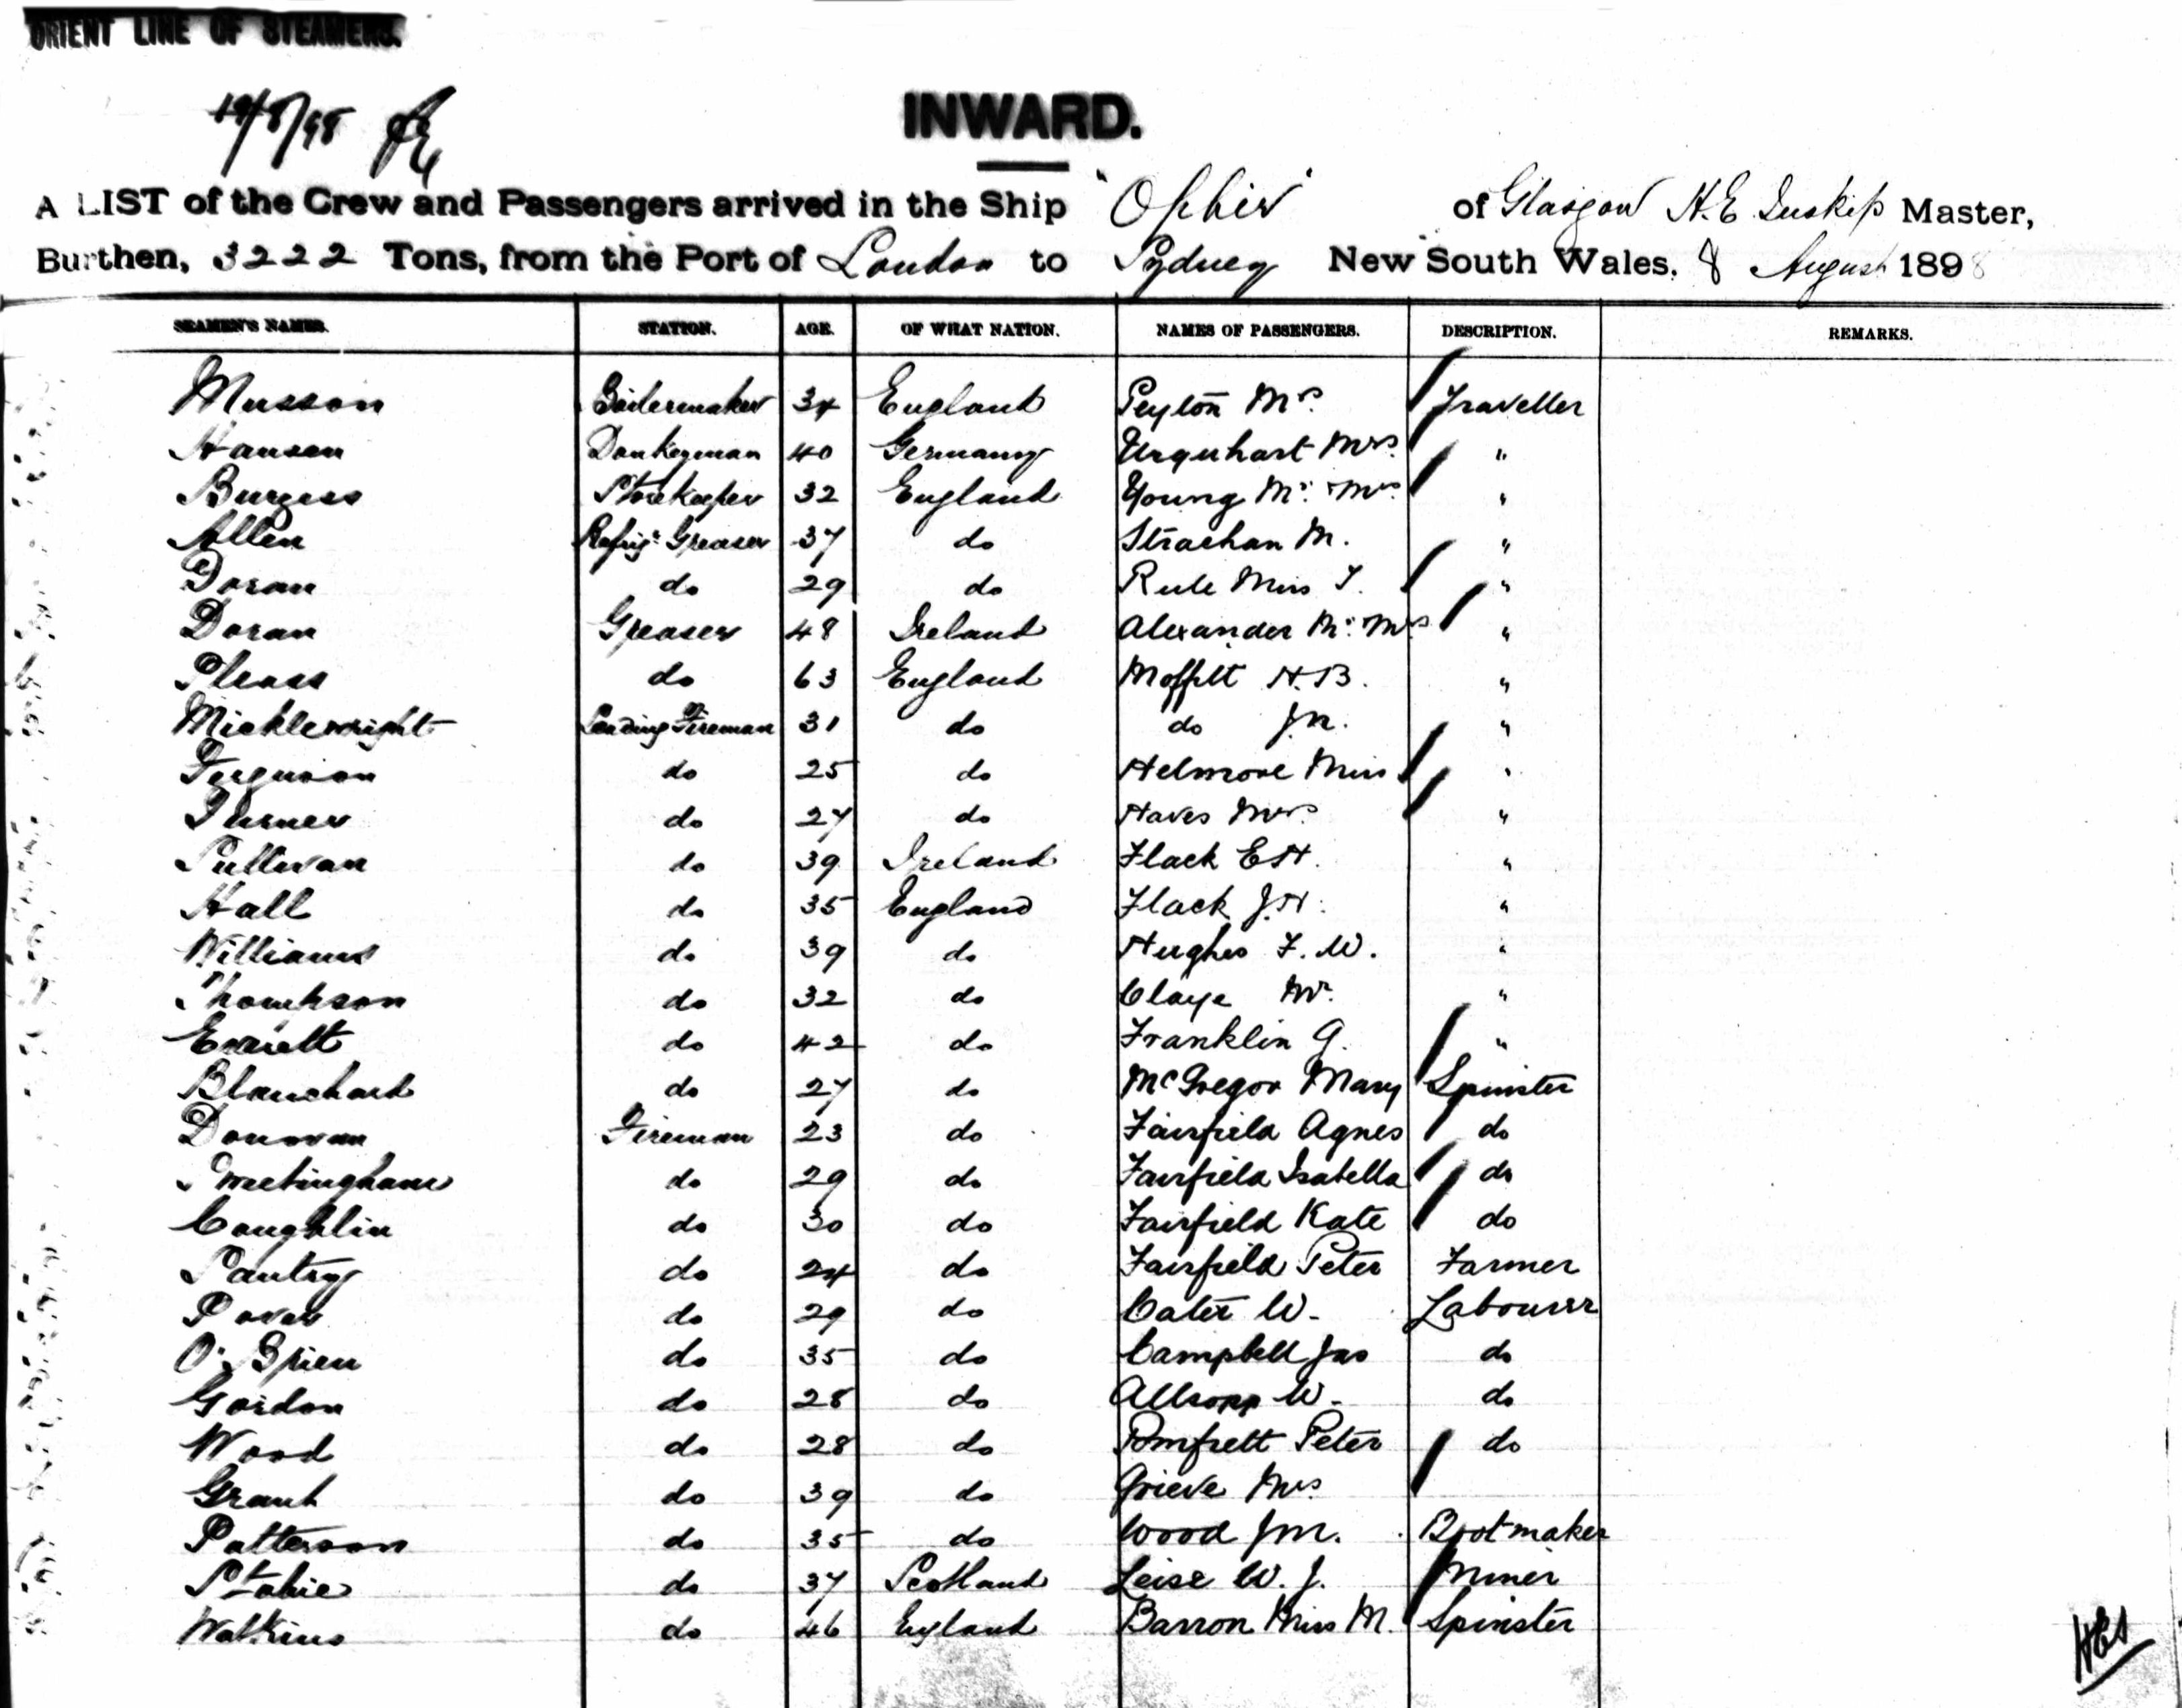 ORIENT LINE OF STEAMERS.
INWARD.
A LIST of the Crew and Passengers arrived in the Ship "Ophir" of Glasgow H.E Inskip Master,
Burthen, 3222 Tons, from the Port of London to Sydney New South Wales. 8 August 1898
SEAMEN'S NAMES. STATION. AGE. OF WHAT NATION. NAMES OF PASSENGERS. DESCRIPTION. REMARKS.
Musson Boilermaker 34 England Peyton Mr. Traveller
Hansen Donkeyman 40 Germany Urquhart Mrs. "
Burgess Storekeeper 32 England Young Mr. Mrs. "
Allen Refrigr Greaser 37 do Strachan M. "
Doran do 29 do Rule Miss "
Doran Greaser 48 Ireland Alexander Mr. Mrs "
Pleass do 63 England Moffitt H.B. "
Micklewright Leading Fireman 31 do do "
Ferguson do 25 do Helmore Miss "
Turner do 27 do Haves Mrs. "
Sullivan do 39 Ireland Flack E.H. "
Hall do 35 England Flack J.H. "
Williams do 39 do Hughes F. W. "
Thompson do 32 do Claye Mr. "
Everett do 42 do Franklin G. "
Blanchard do 27 do McGregor Mary Spinster
Donovan Fireman 23 do Fairfield Agnes do
Sweetingham do 29 do Fairfield Isabella do
Coughlin do 30 do Fairfield Kate do
Santry do 24 do Fairfield Peter Farmer
do 29 do Cater W. Labourer
O'Brien do 35 do Campbell Jas do
Gordon do 28 do Allsopp W. do
Wood do 28 do Pomfrett Peter do
Grant do 39 do Grieve Mrs
Patterson do 35 do Wood J.M. Bootmaker
do 37 Scotland Leise W. J. Miner
Watkins do 46 England Barron Miss M. Spinster